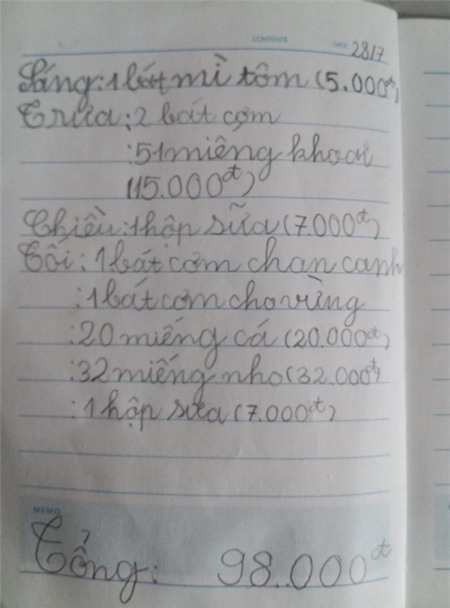 CONTENTS DATE 28/7
Sáng: 1 bát mì tôm (5.000đ)
Trưa: 2 bát cơm
: 51 miếng khoai
(15.000đ)
Chiều: 1 hộp sữa (7000đ)
Tối: 1 bát cơm chan canh
: 1 bát cơm cho vừng
: 20 miếng cá (20.000đ)
: 32 miếng nho (32.000đ)
: 1 hộp sữa (7.000đ)
MEMO
Tổng: 98.000đ